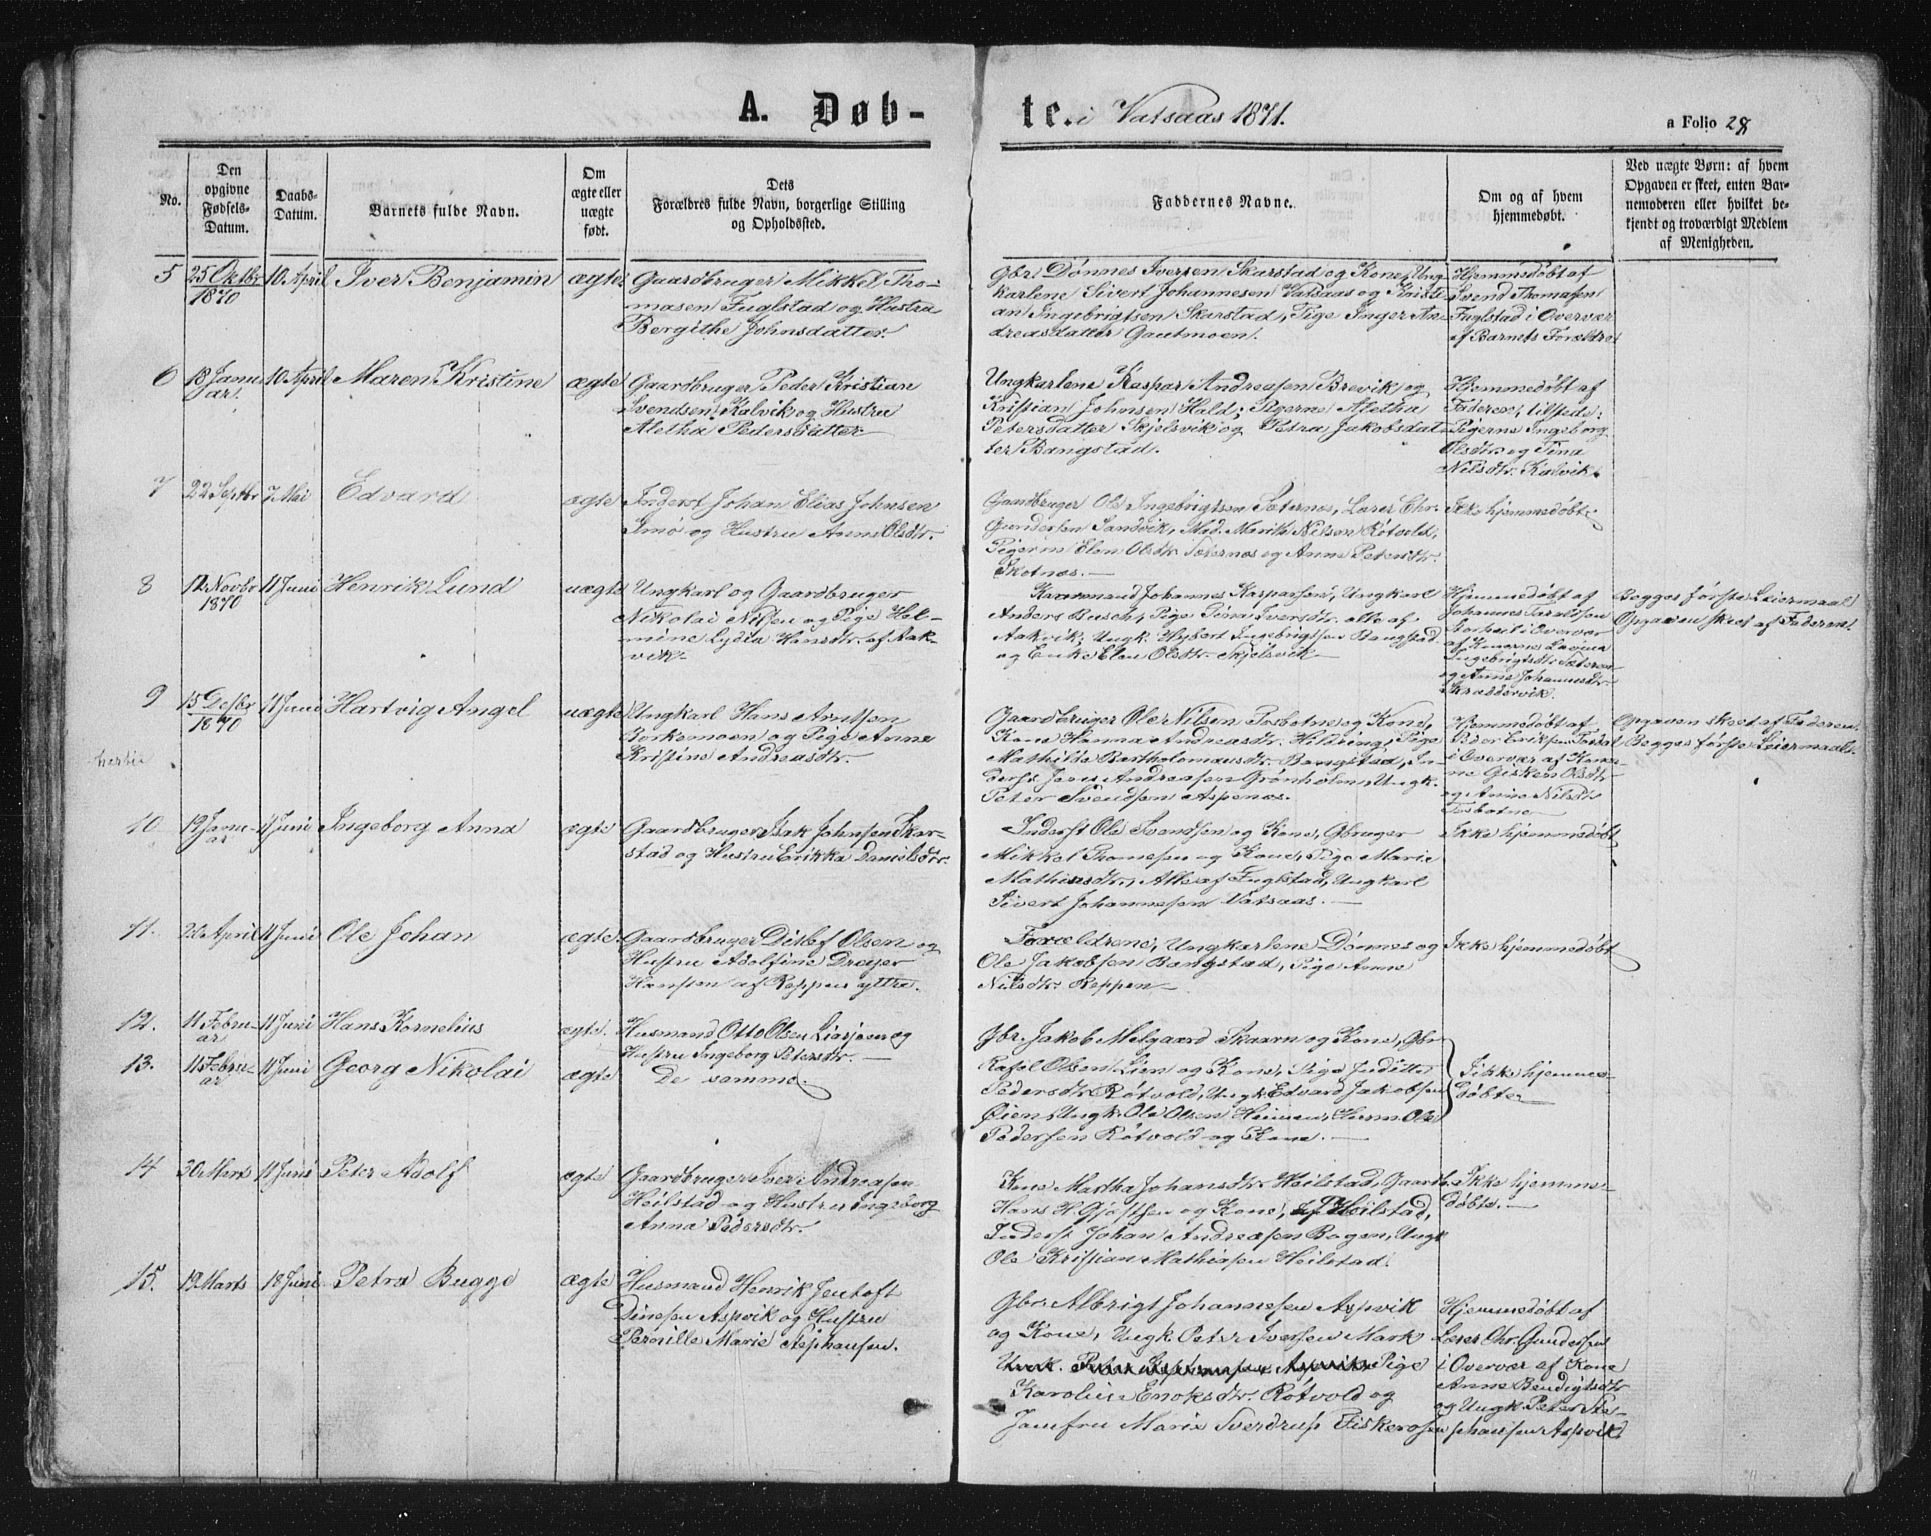 A. Døb-
te. i Vatsaas 1871.
a Folio 28
No.
Den opgivne Fødsels-Datum.
Daabs-Datum.
Barnets fulde Navn.
Om ægte eller uægte født.
Dets Forældres fulde Navn, borgerlige Stilling og Opholdssted.
Faddernes Navne.
Om og af hvem hjemmedøbt.
Ved uægte Børn: af hvem Opgaven er skeet, enten Barnemoderen eller hvilket bekjendt og troværdigt Medlem af Menigheden.
5
25 Oktbr
1870
10 April
Iver Benjamin
ægte
Gaardbruger Mikkel Tho-
masen Fuglstad og Hustru
Bergithe Johnsdatter.
Gbr. Dønnes Iversen Skarstad og Kone, Ung-
karlene Sivert Johannesen Vatsaas og Kristi-
an Ingebrigtsen Skarstad, Pige Inger An-
dreasdatter Gautmoen.
Hjemmedøbt af
Svend Thomasen
Fuglstad i Overvær
af Barnets Forældre
6
13 Janu-
ar.
10 April
Maren Kristine
ægte
Gaardbruger Peder Kristian
Svendsen Kalvik og Hustru
Aletha Pedersdatter
Ungkarlene Kaspar Andreasen Brevik og
Kristian Johnsen Hald; Pigerne Aletha
Petersdatter Skjelsvik og Petra Jakobsdat-
ter Bangstad.
Hjemmedøbt af
Faderen, tilstede:
Pigerne Ingeborg
Olsdtr. og Tina
Nilsdtr. Kalvik.
7
22 Septbr
7 Mai
Edvard
ægte
Inderst Johan Elias Johnsen
Simø og Hustru Anne Olsdtr.
Gaardbruger Ole Ingebrigtsen Sæternes, Lærer Chr.
Gundersen Sandvik, Mad. Marith Nilsen Røtvold,
Pigerne Elen Olsdtr. Sæternæs og Anne Petersdtr.
Skotnæs. —
Ikke hjemmedøbt.
8
12 Novbr
1870
11 Juni
Henrik Lund
uægte
Ungkarl og Gaardbruger
Nikolai Nilsen og Pige Hel-
mine Lydia Hansdtr. af Aak-
vik.
Kaarmand Johannes Kasparsen, Ungkarl
Anders Busch, Pige Tina Iversdtr. alle af
Aakvik; Ungk. Hybert Ingebrigtsen Bangstad
og Enke Elen Olsdtr. Skjelsvik —
Hjemmedøbt af
Johannes Taraldsen
Storheil i Overvær
af Konerne Lavina
Ingebrigtsdtr. Sæternes
og Anne Johannesdtr.
Begges første Leiermaal
Opgaven skeet af Faderen.
9
15 Desbr
1870
11 Juni
Hartvig Angel
uægte
Ungkarl Hans Arntsen
Borkemoen og Pige Anne
Kristine Andreasdtr.
Gaardbruger Ole Nilsen Tosbotne og Kone,
Kone Hanna Andreasdtr. Hildring; Pige
Mathilde Bartholomæusdtr. Bangstad, In-
derst Jens Andreasen Grønholm, Ungk.
Peter Svendsen Aspenæs.
Hjemmedøbt af
Peder Eriksen Tosdal
i Overvær af Kone-
ne Gisken Olsdtr.
og Anne Nilsdtr.
Tosbotne
Opgaven skeet af Faderen.
Begges første Leiermaal.
10
19 Janu-
ar
11 Juni
Ingeborg Anna
ægte
Gaardbruger Isak Johnsen Skar-
stad og Hustru Erikka Danielsdtr.
Inderst Ole Svendsen og Kone, Gbruger
Mikkel Thomesen og Kone, Pige Marie
Mathiasdtr., Alle af Fuglstad, Ungkarl
Sivert Johannesen Vatsaas. —
Ikke hjemmedøbt
11.
22 April
11 Juni
Ole Johan
ægte.
Gaardbruger Ditlef Olsen og
Hustru Adolfine Dreyer
Hansen af Reppen yttre.
Forældrene, Ungkarlene Dønnes og
Ole Jakobsen Bangstad, Pige Anne
Nilsdtr. Reppen —
Ikke hjemmedøbt
12.
11 Febru-
ar
11 Juni
Hans Kornelius
ægte.
Husmand Otto Olsen Liasjøen og
Hustru Ingeborg Petersdtr. —
13.
11 Febru-
ar
11 Juni
Georg Nikolai
ægte
De samme.
Gbr. Jakob Melgaard Skaarn og Kone, Gbr.
Rafel Olsen Lien og Kone, Pige Juditte
Pedersdtr. Røtvold, Ungk. Edvard Jakobsen
Øien, Ungk. Ole Olsen Heimen, Husm. Ole
Pedersen Røtvold og Kone. —
Ikke hjemme-
døbte
14
30 Marts
11 Juni
Peter Adolf
ægte
Gaardbruger Iver Andreasen
Heilstad og Hustru Ingeborg
Anna Pedersdtr.
Kone Martha Johansdtr. Heilstad, Gaardb.
Hans H. Gjøstsen og Kone, af Heilstad,
Inderst Johan Andreasen Bogen, Ungk
Ole Kristian Mathiasen Heilstad.
Ikke hjemme-
døbt. —
15.
19 Marts
18 Juni
Petra Bugge
ægte
Husmand Henrik Jentoft
Dinesen Aspvik og Hustru
Pernille Marie Stephansen.
Gbr. Albrigt Johannesen Aspvik
og Kone, Ungk Peter Iversen Mark
Pige
Karolius Enoksdtr. Røtvold og
Jomfru Marie Sverdrup Fiskerosen
Hjemmedøbt af
Lærer Chr. Gundersen
i Overvær af Kone
Anne Bendigtsdtr
og Ungk. Peter Ste-
phansen Aspvik